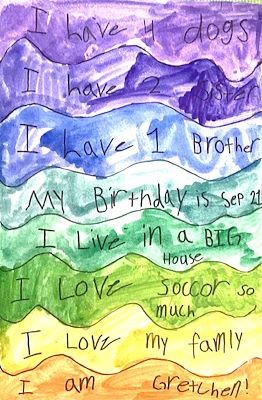 I have 4 dogs
I have 2 sister
I have 1 Brother
MY Birthday is Sep 21
I Live in a BIG
House
I LOVE soccor so
much
I Love my famly
I am Gretchen!